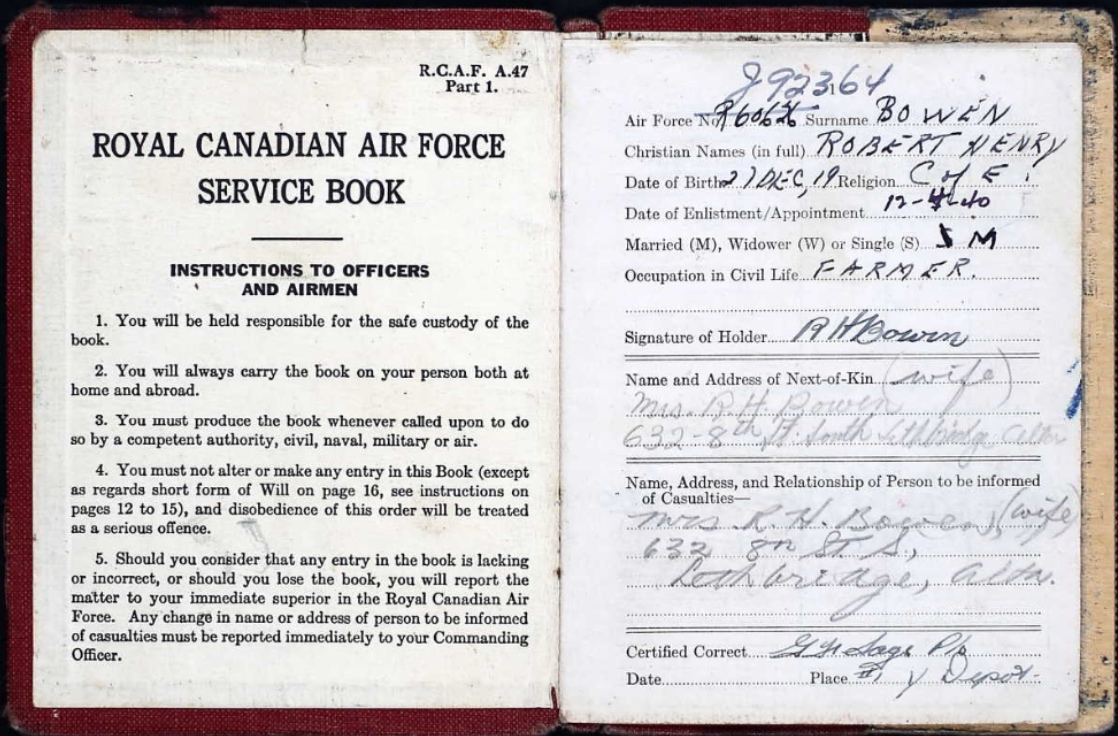 R.C.A.F. A.47
Part 1.
ROYAL CANADIAN AIR FORCE
SERVICE BOOK
INSTRUCTIONS TO OFFICERS
AND AIRMEN
1. You will be held responsible for the safe custody of the
book.
2. You will always carry the book on your person both at
home and abroad.
3. You must produce the book whenever called upon to do
so by a competent authority, civil, naval, military or air.
4. You must not alter or make any entry in this Book (except
as regards short form of Will on page 16, see instructions on
pages 12 to 15), and disobedience of this order will be treated
as a serious offence.
5. Should you consider that any entry in the book is lacking
or incorrect, or should you lose the book, you will report the
matter to your immediate superior in the Royal Canadian Air
Force. Any change in name or address of person to be informed
of casualties must be reported immediately to your Commanding
Officer.
J92364
Air Force No. Surname BOWEN
Christian Names (in full) ROBERT HENRY
Date of Birth 27 DEC, 19 Religion C of E.
Date of Enlistment/Appointment 12-4-40
Married (M), Widower (W) or Single (S) S M
Occupation in Civil Life FARMER.
Signature of Holder RHBowen
Name and Address of Next-of-Kin (wife)
Mrs. R. H. Bowen
632-8th St. South Lethbridge Alta
Name, Address, and Relationship of Person to be informed
of Casualties—
Mrs R. H. Bowen, (wife)
632 8th St. S,
Lethbridge, Alta.
Certified Correct
Date Place #1 Y Depot.